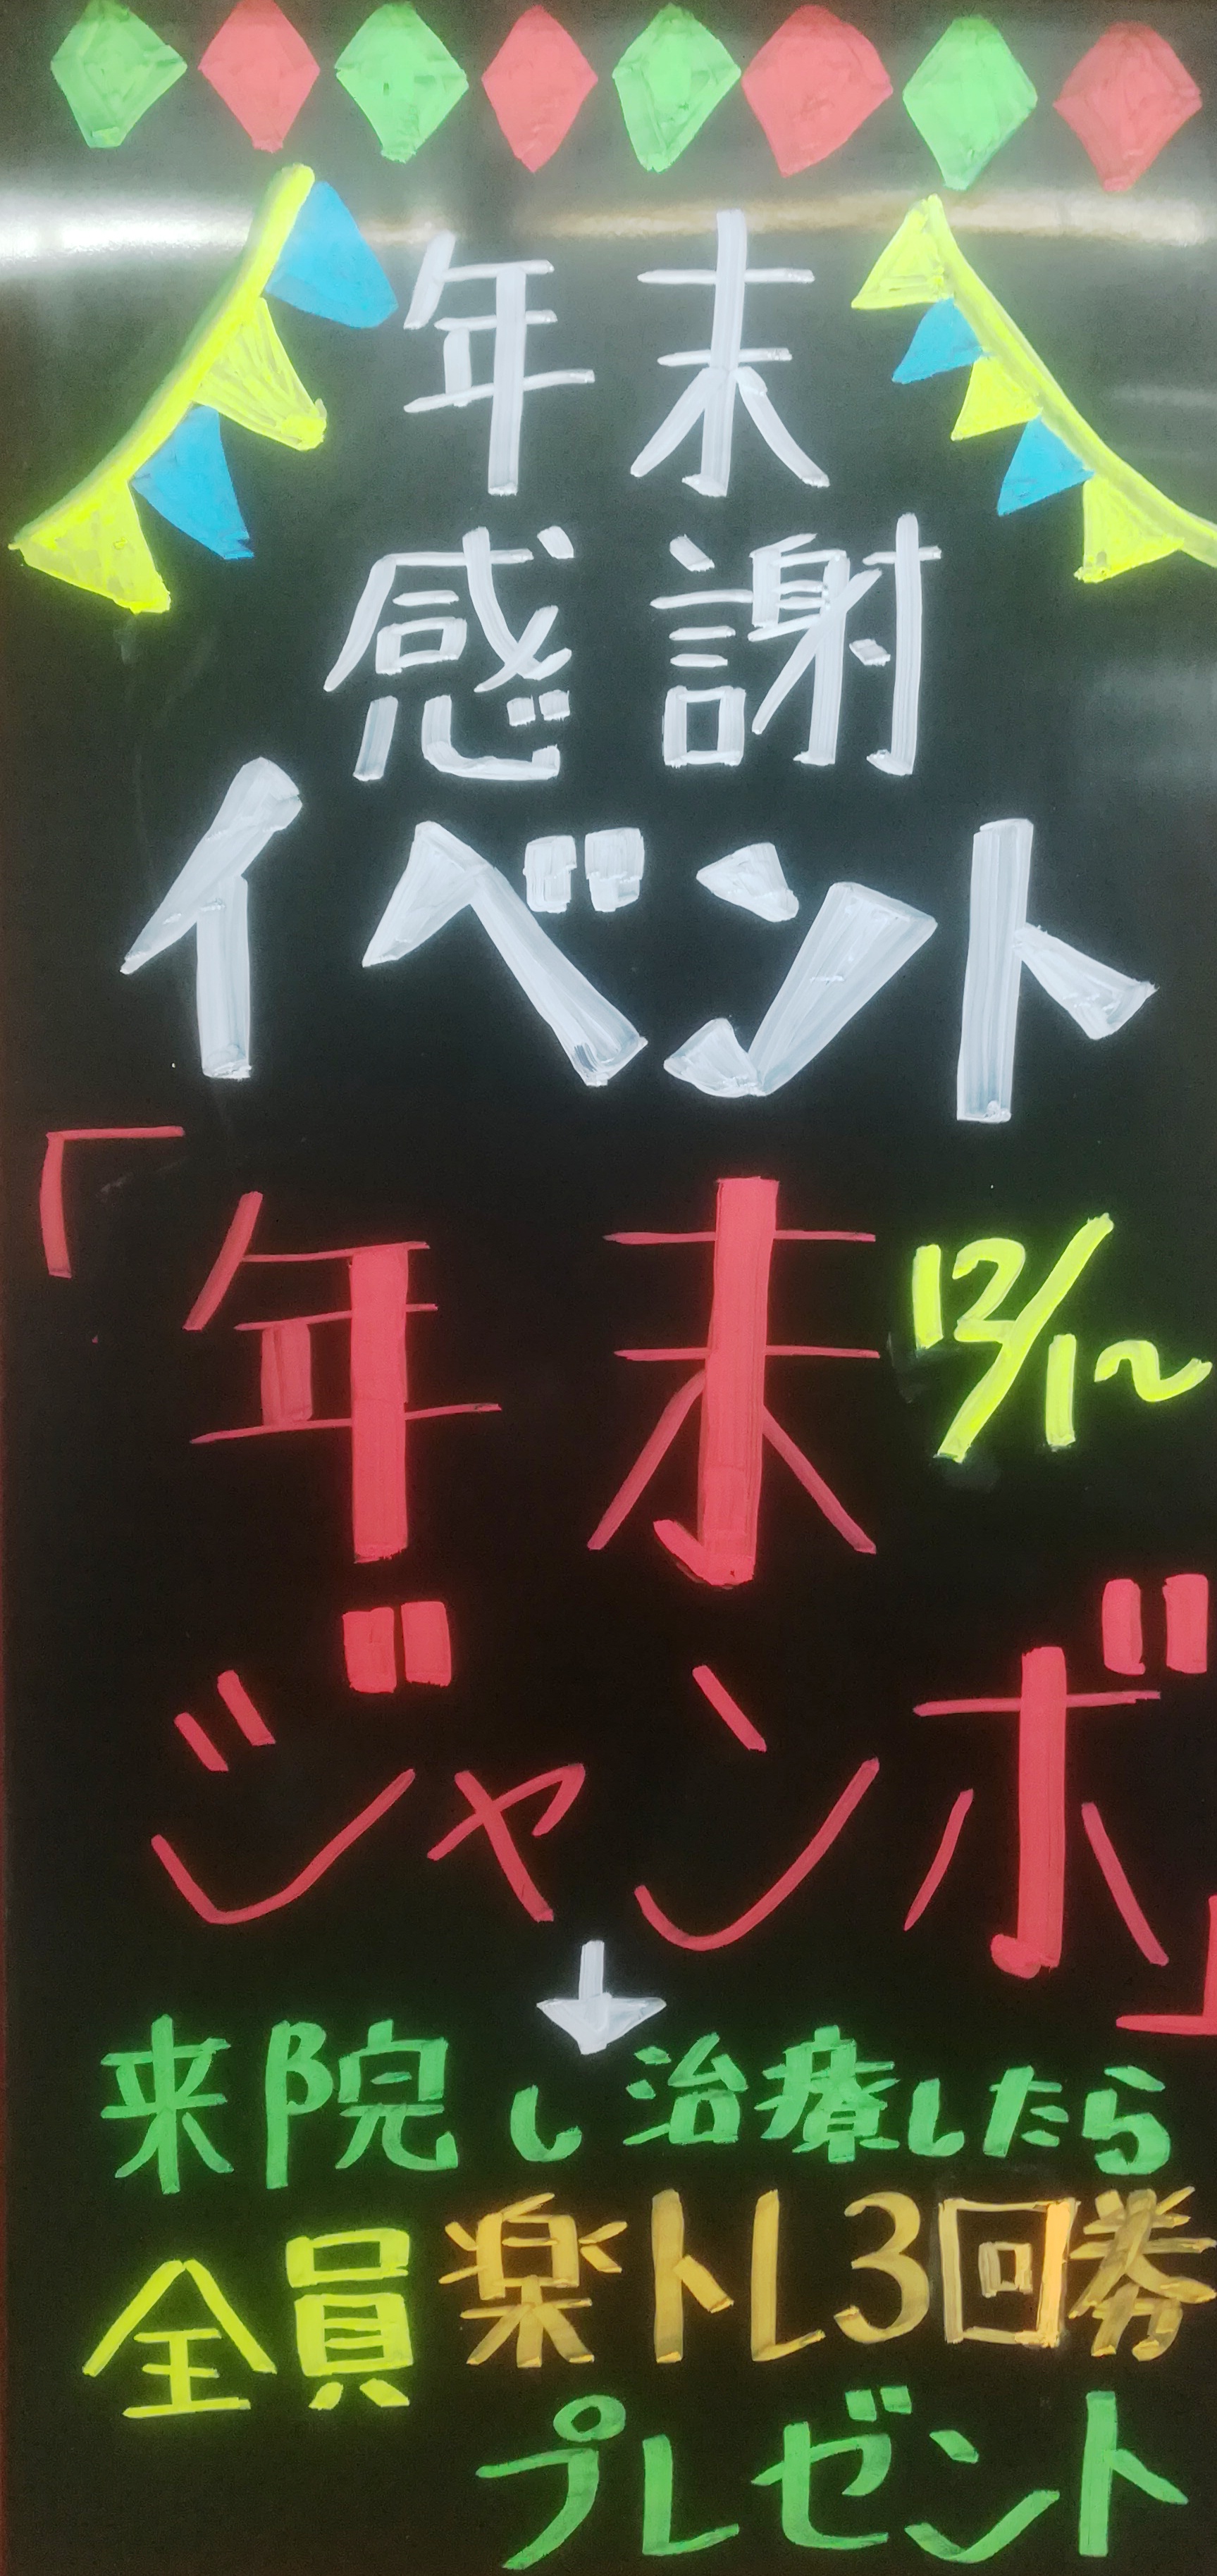 年末
感謝
イベント
「年末 12/1~
ジャンボ」
↓
来院し治療したら
全員 楽トレ3回券
プレゼント